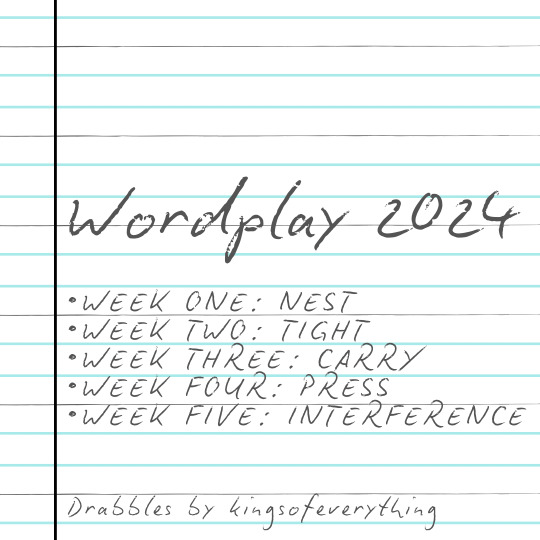 Wordplay 2024
•WEEK ONE: NEST
•WEEK TWO: TIGHT
•WEEK THREE: CARRY
•WEEK FOUR: PRESS
•WEEK FIVE: INTERFERENCE
Drabbles by kingsofeverything